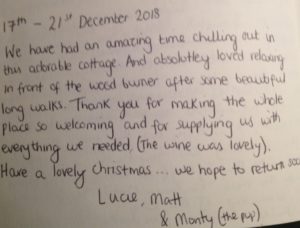 17th - 21st December 2018
We have had an amazing time chilling out in
this adorable cottage. And absolutley loved relaxing
in front of the wood burner after some beautiful
long walks. Thank you for making the whole
place so welcoming and for supplying us with
everything we needed. (The wine was lovely).
Have a lovely christmas... we hope to return soo
Lucie, Matt
& Monty (the pup)